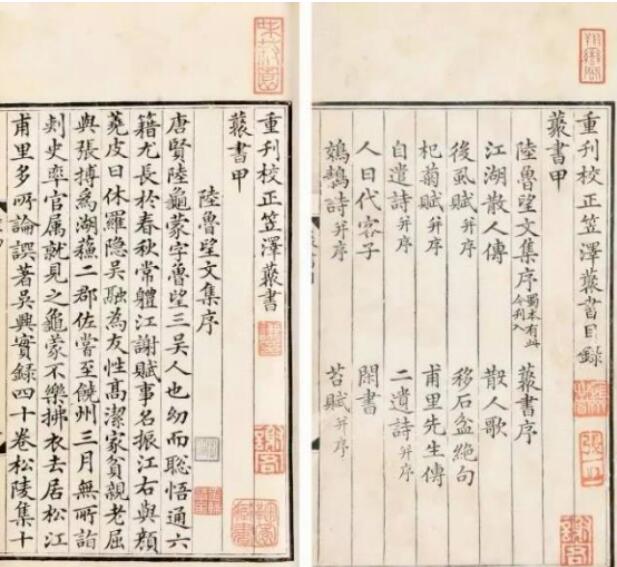 重刊校正笠澤藂書目錄
藂書甲
陸魯望文集序 蜀本有此今刊入 藂書序
江湖散人傳 散人歌
後虱賦并序 移石盆絶句
杞菊賦并序 甫里先生傳
自遣詩并序 二遺詩并序
人日代客子 閑書
鵁鶄詩并序 苔賦并序
重刊校正笠澤藂書
藂書甲
陸魯望文集序
唐賢陸龜蒙字魯望三吳人也幼而聦悟通六
籍尤長於春秋常軆江謝賦事名振江右與顔
蕘皮日休羅隐吳融為友性髙潔家貧親老屈
與張搏為湖蘓二郡佐甞至饒州三月無所詣
刾史率官属就見之龜蒙不樂拂衣去居松江
甫里多所論譔著吳興實録四十卷松陵集十